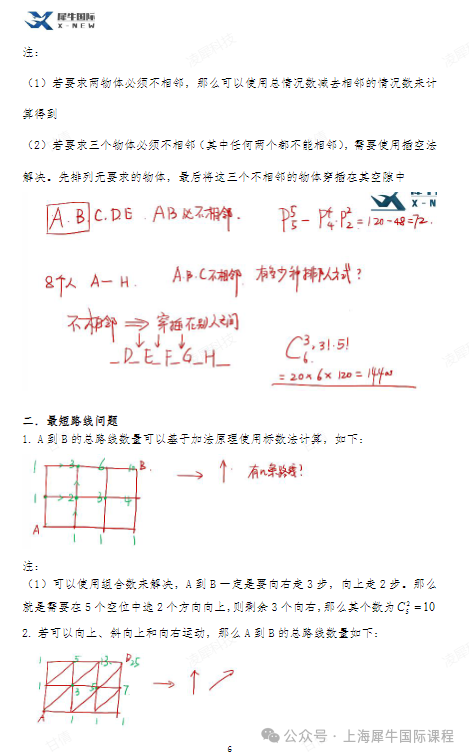 犀牛国际
X-NEW
注:
(1)若要求两物体必须不相邻,那么可以使用总情况数减去相邻的情况数来计
算得到
(2)若要求三个物体必须不相邻(其中任何两个都不能相邻),需要使用插空法
解决。先排列无要求的物体,最后将这三个不相邻的物体穿插在其空隙中
A.B. C.D E. AB必不相邻. P₅⁵ - P₄⁴·P₂² = 120-48=72.
8个人 A-H. A.B.C不相邻. 有多少种排队方式?
不相邻 ⟹ 穿插在别人之间
_D_E_F_G_H_
C₆³·3!·5!
=20×6×120=14400
二.最短路线问题
1. A到B的总路线数量可以基于加法原理使用标数法计算,如下:
1 3 6 10 B.
→ ↑. 有几条路线?
1 2 3 4
A 1 1 1
注:
(1)可以使用组合数来解决,A到B一定是要向右走3步,向上走2步。那么
就是需要在5个空位中选2个方向向上,则剩余3个向右,那么其个数为C₅²=10
2. 若可以向上、斜向上和向右运动,那么A到B的总路线数量如下:
1 5 13 B25
→ ↑ ↗
1 3 5 7
A 1 1 1
6
公众号·上海犀牛国际课程